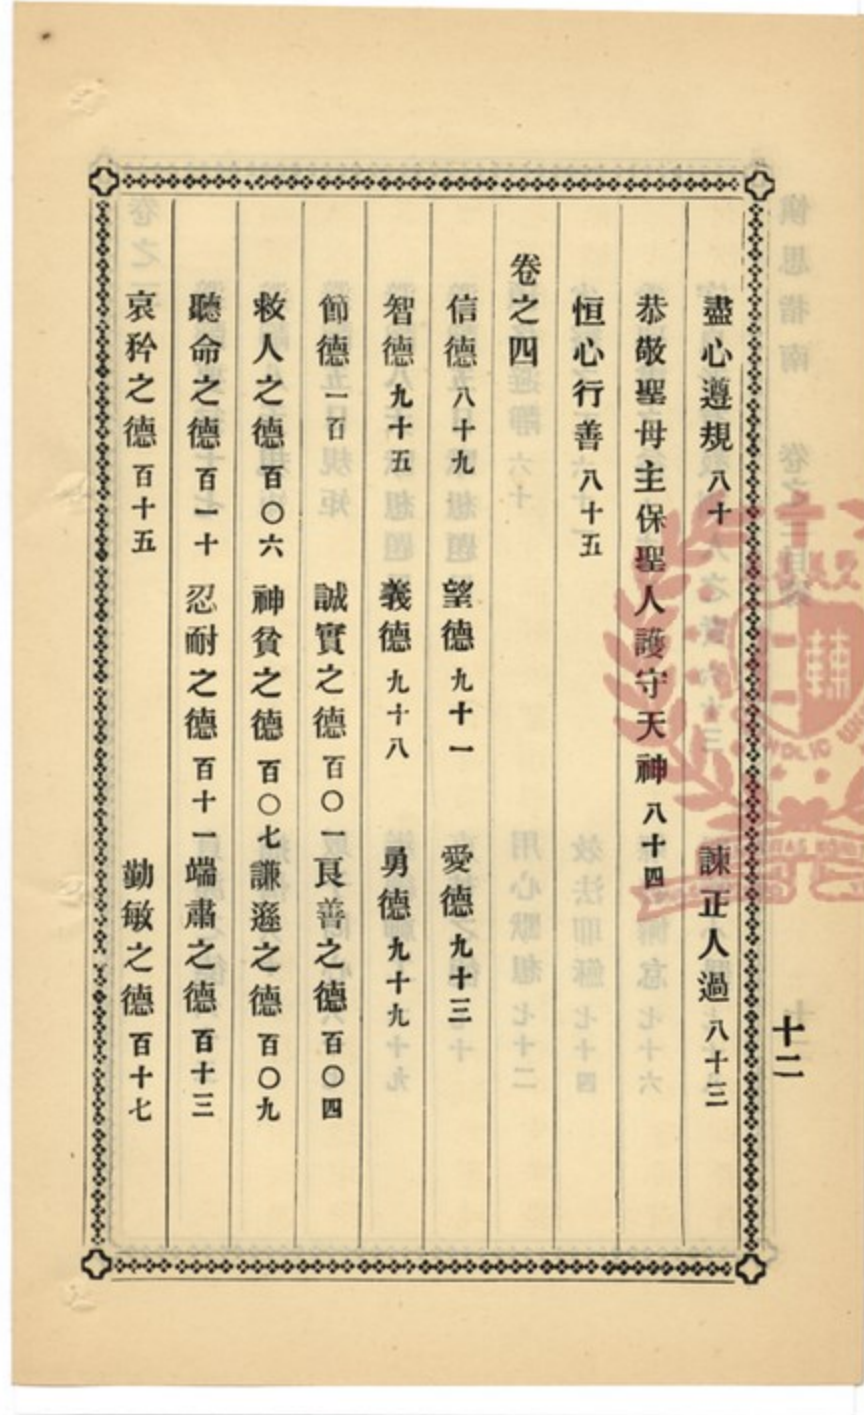 十二
盡心遵規 八十 諫正人過 八十三
恭敬聖母主保聖人護守天神 八十四
恒心行善 八十五
卷之四
信德 八十九 望德 九十一 愛德 九十三
智德 九十五 義德 九十八 勇德 九十九
節德 一百 誠實之德 百〇一 良善之德 百〇四
救人之德 百〇六 神貧之德 百〇七 謙遜之德 百〇九
聽命之德 百一十 忍耐之德 百十一 端肅之德 百十三
哀矜之德 百十五 勤敏之德 百十七